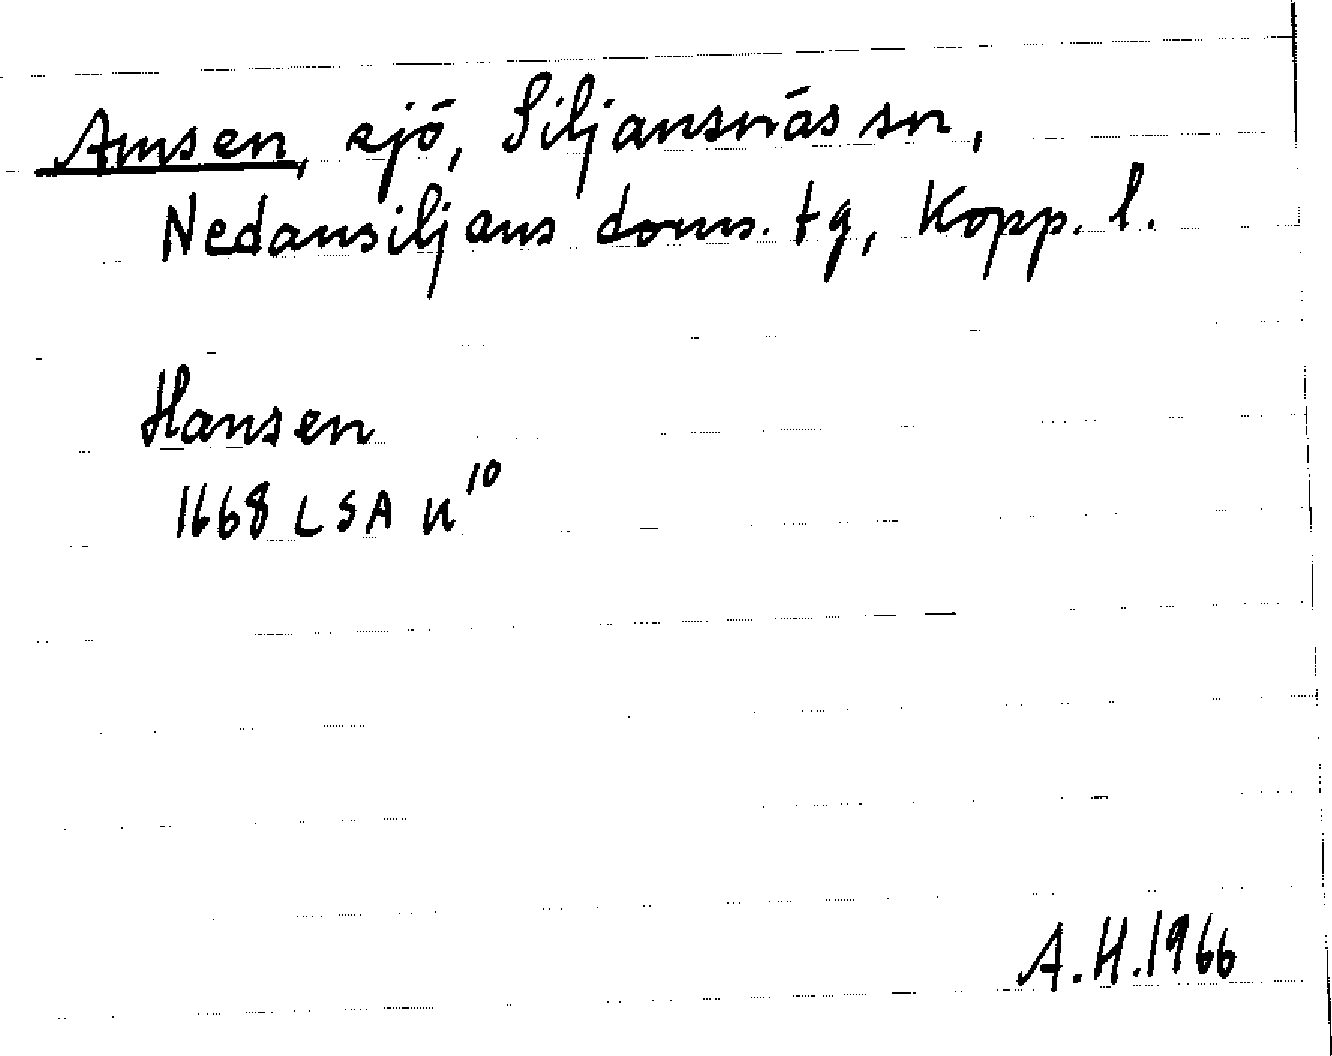 Amsen, sjö, Siljansnäs sn,
Nedansiljans doms. tg, Kopp. l.
Hansen
1668 LSA U 10
A.H. 1966